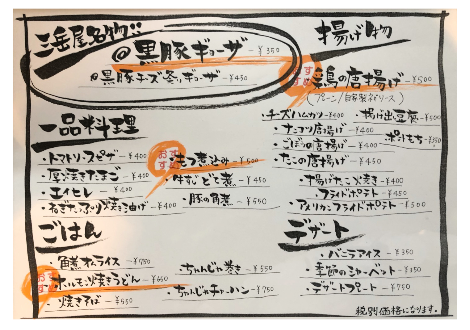 三岳屋名物!!
@黒豚ギョーザ -¥350
@黒豚チーズ祭りギョーザ -¥450
一品料理
・トマトソースピザ -¥400
・厚焼きたまご -¥400
・エイヒレ -¥400
・ねぎたっぷり焼き油揚げ -¥400
おすすめ
・もつ煮込み -¥600
・牛すじどて煮 -¥450
・豚の角煮 -¥550
ごはん
・角煮オムライス -¥750
おすすめ
・ホルモン焼きうどん -¥650
・焼きそば -¥550
・ちゃんじゃ巻き -¥550
・ちゃんじゃチャーハン -¥750
揚げ物
おすすめ
・鶏の唐揚げ -¥500
(プレーン/自家製ネギソース)
・チーズハムカツ -¥400
・ナンコツ唐揚げ -¥400
・ごぼうの唐揚げ -¥400
・たこの唐揚げ -¥450
・揚げ出し豆腐 -¥500
・ポテもち -¥350
・揚げたこ焼き -¥400
・フライドポテト -¥450
・アメリカンフライドポテト -¥500
デザート
・バニラアイス -¥350
・季節のシャーベット -¥150
・デザートプレート -¥750
税別価格になります。